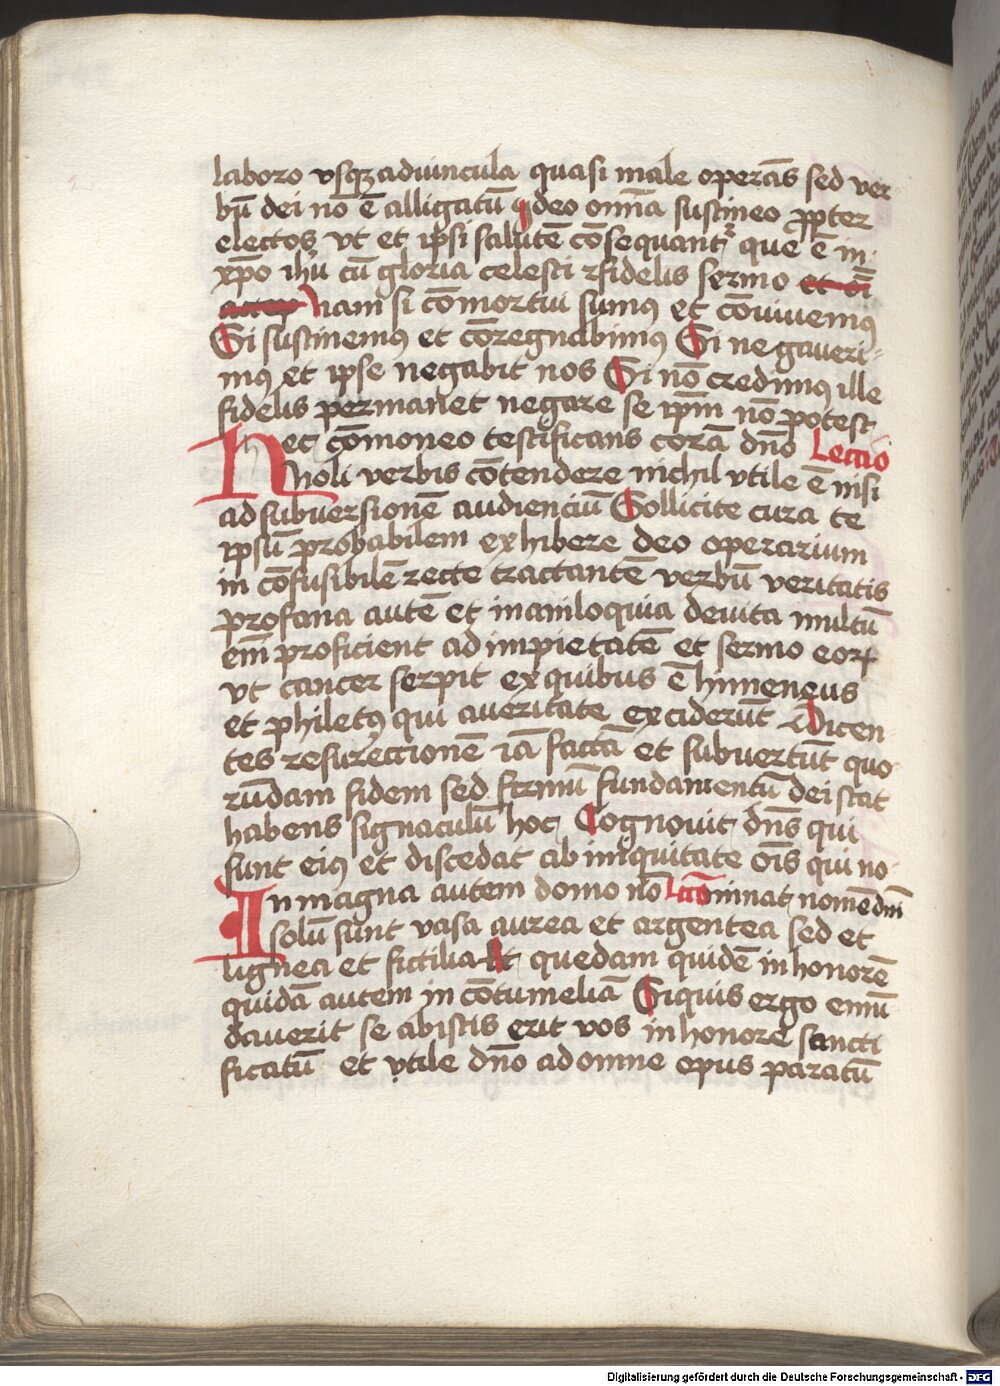 laboro vsqꝫ ad uincula quasi male operās sed ver-
bū dei nō ē alligatū ideo om̄ia sustineo ꝓpter
electos vt et ipsi salutē cōsequant᷑ que ē in
xp̄o ihū cū gloria celesti fidelis sermo
nam si cōmortui sumꝰ et cōviuemꝰ
Si sustinemꝰ et cōregnabimꝰ Si negaueri-
mꝰ et ipse negabit nos Si nō credimꝰ ille
fidelis permanet negare se ip̄m nō potest
Hec cōmoneo testificans corā dn̄o Leccio
Noli verbis cōtendere nichil vtile ē nisi
ad subuersionē audienciū Sollicite cura te
ipsū probabilem exhibere deo operarium
in cōfusibilē recte tractantē verbū veritatis
profana autē et inaniloquia deuita multū
em̄ proficient ad impietatē et sermo eoꝝ
vt cancer serpit ex quibus ē himeneus
et philetꝰ qui a ueritate exciderūt Dicen
tes resureccionē iā factā et subuertūt quo-
rūdam fidem sed firmū fundamentū dei stat
habens signaculū hoc Cognouit dn̄s qui
sunt eiꝰ et discedat ab iniquitate om̄s qui no-
In magna autem domo nō Lccō minat nomē dn̄i
solū sunt vasa aurea et argentea sed et
lignea et fictilia Et quedam quidē in honorē
quidā autem in cōtumeliā Siquis ergo emū
dauerit se ab istis erit vos in honorē sancti
ficatū et vtile dn̄o ad omne opus paratū
Digitalisierung gefördert durch die Deutsche Forschungsgemeinschaft - DFG